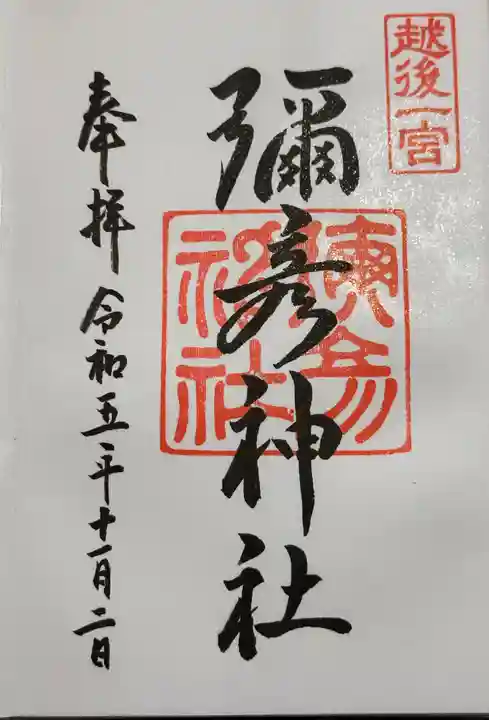 越後一宮
彌彦神社
奉拝 令和五年十一月二日